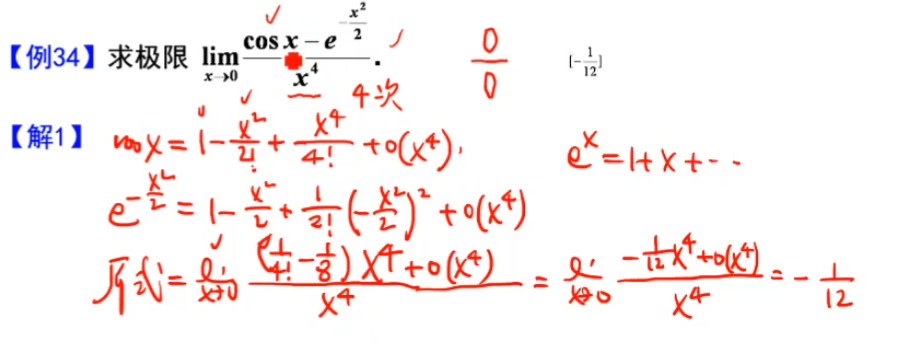 【例34】求极限 lim_{x→0} (cos x − e^{−x²/2}) / x⁴ . 0/0 [−1/12]
4次
【解1】 cos x = 1 − x²/2! + x⁴/4! + o(x⁴), e^x = 1 + x + ⋯
e^{−x²/2} = 1 − x²/2 + 1/2! (−x²/2)² + o(x⁴)
原式 = lim_{x→0} ((1/4! − 1/8) x⁴ + o(x⁴)) / x⁴ = lim_{x→0} (−1/12 x⁴ + o(x⁴)) / x⁴ = −1/12